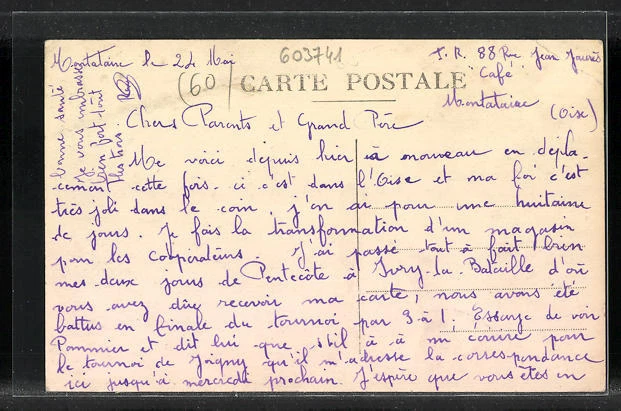 603741
(60)
CARTE POSTALE
Montataire le 24 Mai
T. R. 88 Rue Jean Jaurès
Café
Montataire
(Oise)
Chers Parents et Grand Père
Me voici depuis hier à nouveau en dépla-
cement cette fois-ci c'est dans l'Oise et ma foi c'est
très joli dans le coin, j'en ai pour une huitaine
de jours. Je fais la transformation d'un magasin
pour les Coopérateurs. J'ai passé tout à fait bien
mes deux jours de Pentecôte à Ivry-la-Bataille d'où
vous avez dûe recevoir ma carte, nous avons été
battus en finale du tournoi par 3 à 1. Essayez de voir
Pommier et dit lui que s'il à à m'écrire pour
le tournoi de Joigny qu'il m'adresse la correspondance
ici jusqu'à mercredi prochain. J'espère que vous êtes en
bonne santé
je vous embrasse
bien fort tout
les trois.